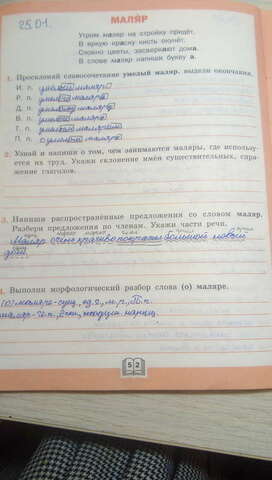 25.01.
МАЛЯР
Утром маляр на стройку придёт,
В яркую краску кисть окунёт;
Словно цветы, засверкают дома.
В слове маляр напиши букву а.
1. Просклоняй словосочетание умелый маляр, выдели окончания.
И. п. умелый маляр
Р. п.
Д. п.
В. п.
Т. п.
П. п.
2. Узнай и напиши о том, чем занимаются маляры, где использу-
ется их труд. Укажи склонение имён существительных, спря-
жение глаголов.
3. Напиши распространённые предложения со словом маляр.
Разбери предложения по членам. Укажи части речи.
Маляр очень красиво покрасил большой новый
дом.
4. Выполни морфологический разбор слова (о) маляре.
(о) маляре-сущ., ед.ч., м.р., П.п.
маляр-И.п.,
52